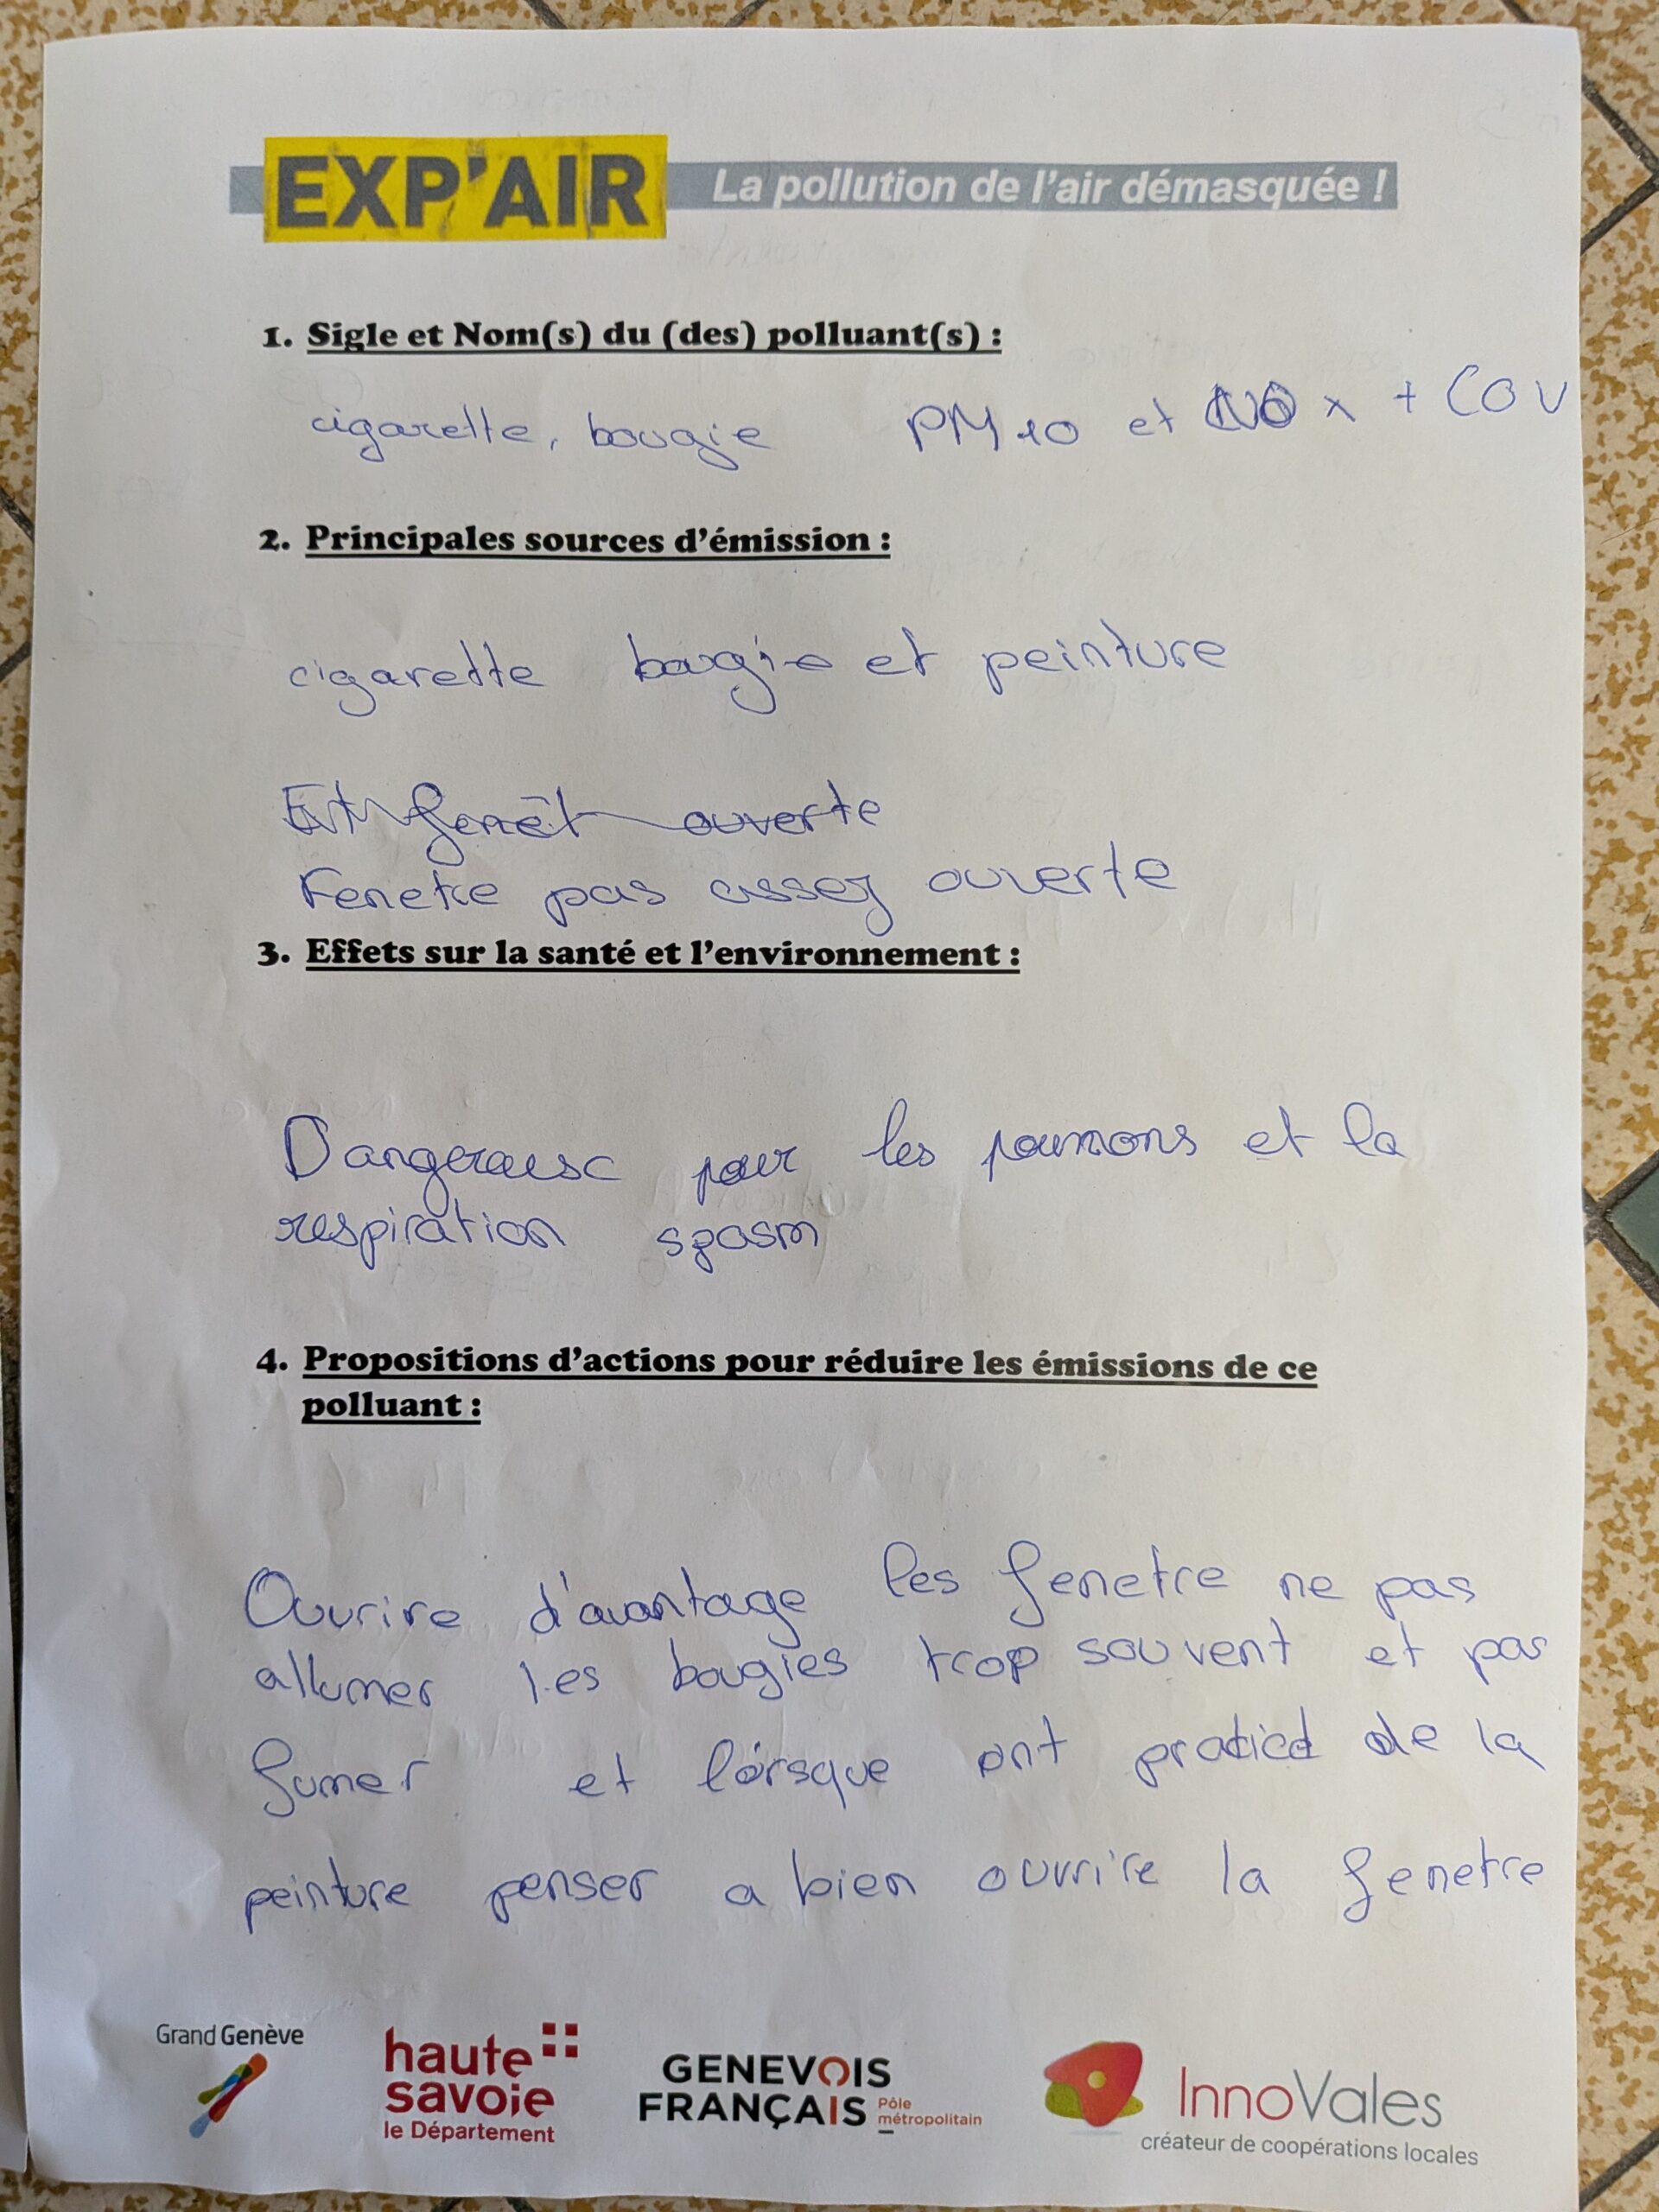 EXP'AIR La pollution de l'air démasquée !
1. Sigle et Nom(s) du (des) polluant(s) :
cigarette, bougie PM10 et NOx + COV
2. Principales sources d'émission :
cigarette bougie et peinture
fenêt ouverte
Fenetre pas assez ouverte
3. Effets sur la santé et l'environnement :
Dangereuse pour les poumons et la
respiration spasm
4. Propositions d'actions pour réduire les émissions de ce
polluant :
Ouvrire d'avantage les fenetre ne pas
allumer les bougies trop souvent et pas
fumer et lorsque ont de la
peinture penser a bien ouvrire la fenetre
Grand Genève
haute
savoie
le Département
GENEVOIS
FRANÇAIS Pôle
métropolitain
InnoVales
créateur de coopérations locales